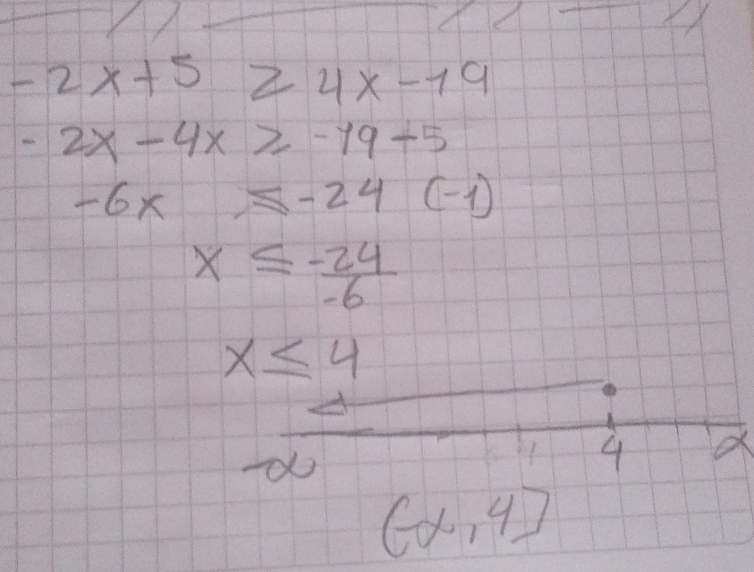 -2x+5 ≥ 4x-19
-2x-4x ≥ -19-5
-6x ≤ -24 (-1)
x ≤ -24/-6
x ≤ 4
-∞ 4 ∞
(-∞, 4]